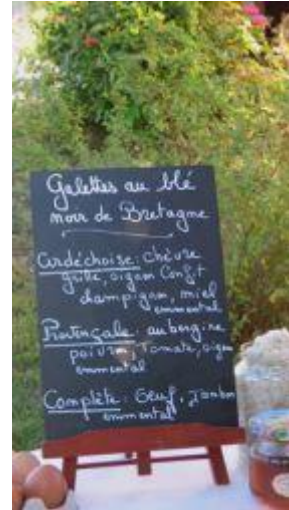 Galettes au blé
noir de Bretagne
Ardéchoise: chèvre
grille, oignon Confit
champignon, miel
emmental
Provençale: aubergine
poivron, Tomate, oignon
emmental
Complète: Oeuf, Jambon
emmental